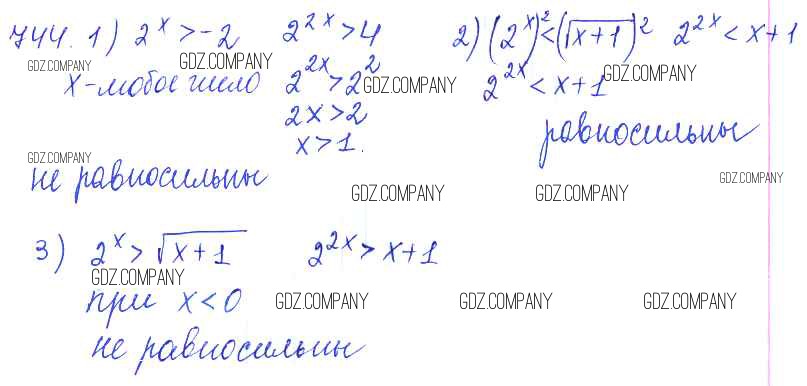 744. 1) 2^x > -2 2^{2x} > 4 2) (2^x)^2 < (√(x+1))^2 2^{2x} < x+1
GDZ.COMPANY GDZ.COMPANY GDZ.COMPANY
x - любое число 2^{2x} > 2^2 GDZ.COMPANY 2^{2x} < x+1
2x > 2
x > 1.
равносильны
GDZ.COMPANY
не равносильны
GDZ.COMPANY GDZ.COMPANY GDZ.COMPANY
3) 2^x > √(x+1) 2^{2x} > x+1
GDZ.COMPANY
при x < 0 GDZ.COMPANY GDZ.COMPANY GDZ.COMPANY
не равносильны